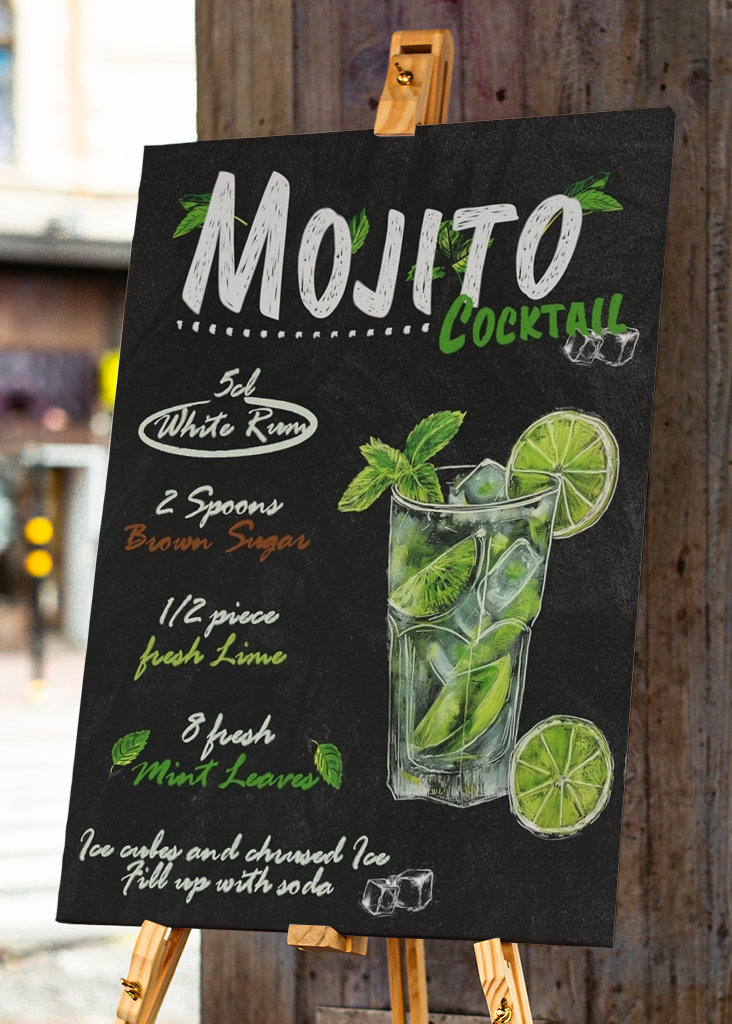 MOJITO
COCKTAIL
5cl
White Rum
2 Spoons
Brown Sugar
1/2 piece
fresh Lime
8 fresh
Mint Leaves
Ice cubes and chrused Ice
Fill up with soda